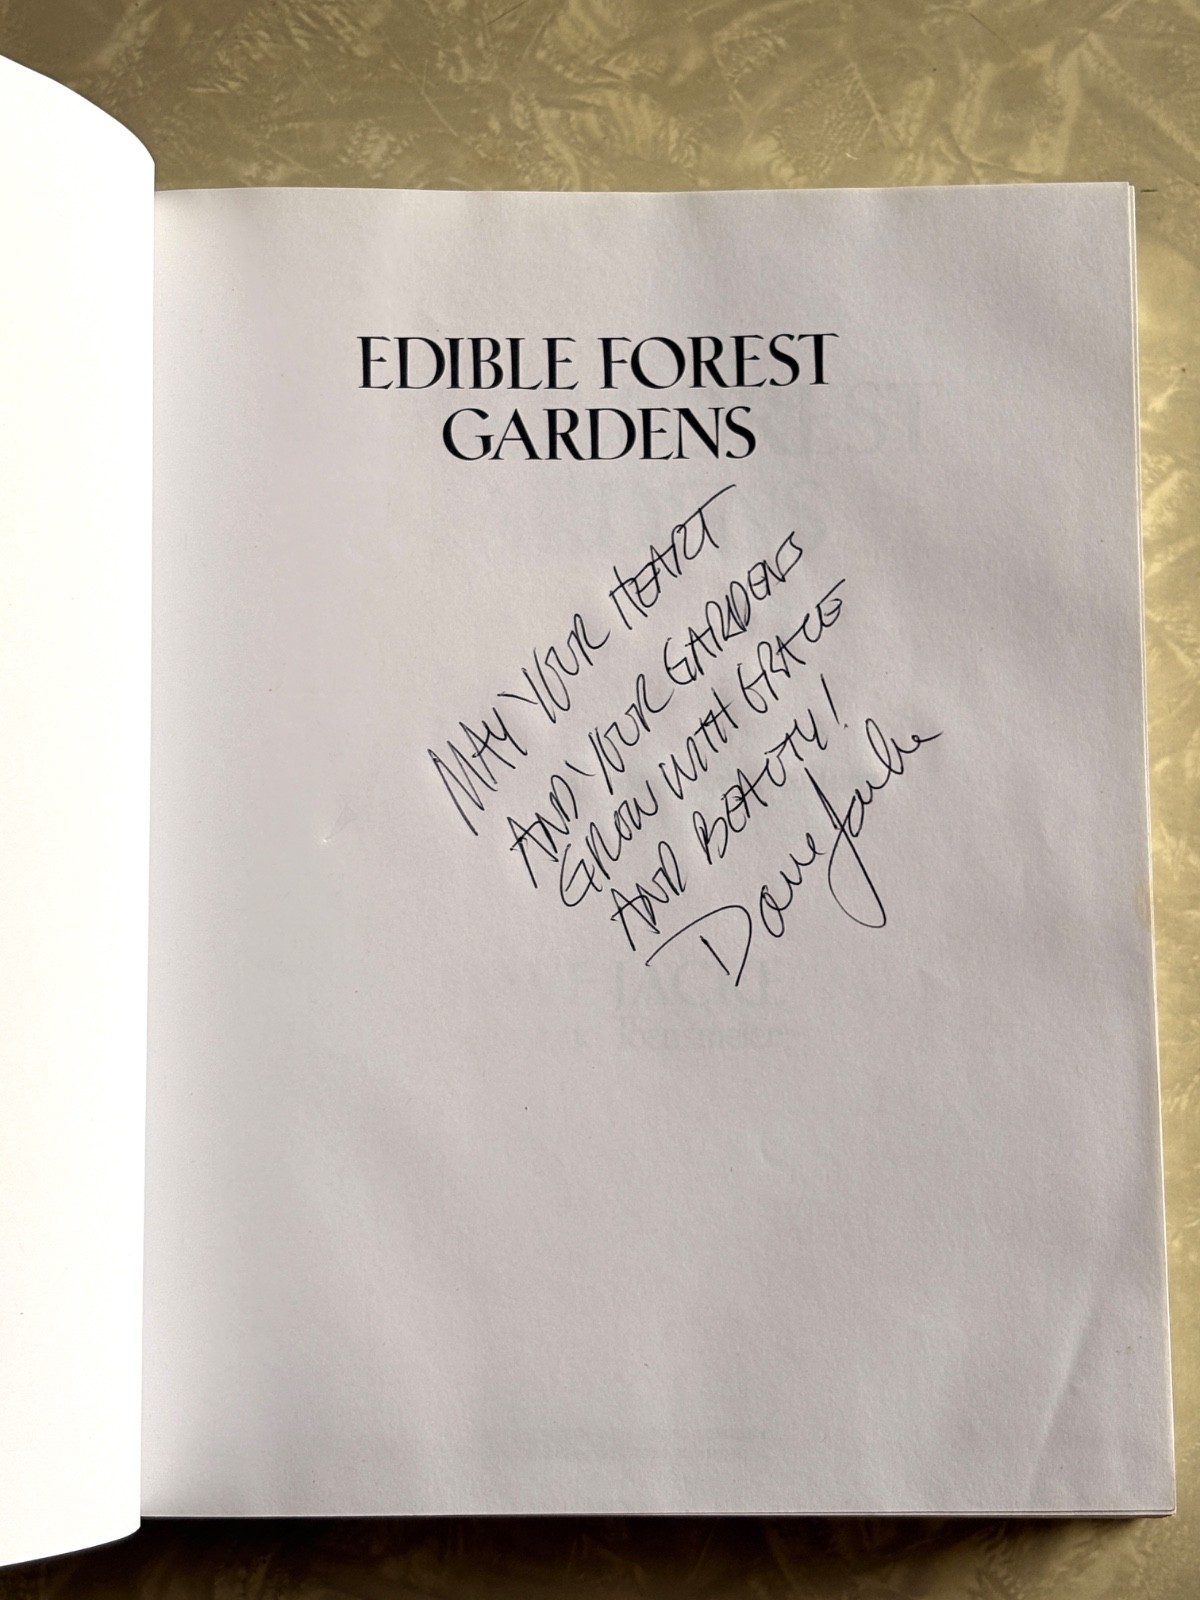 EDIBLE FOREST
GARDENS
MAY YOUR HEART
AND YOUR GARDENS
GROW WITH GRACE
AND BEAUTY!
Dave Jacke
JACKE
Toensmeier